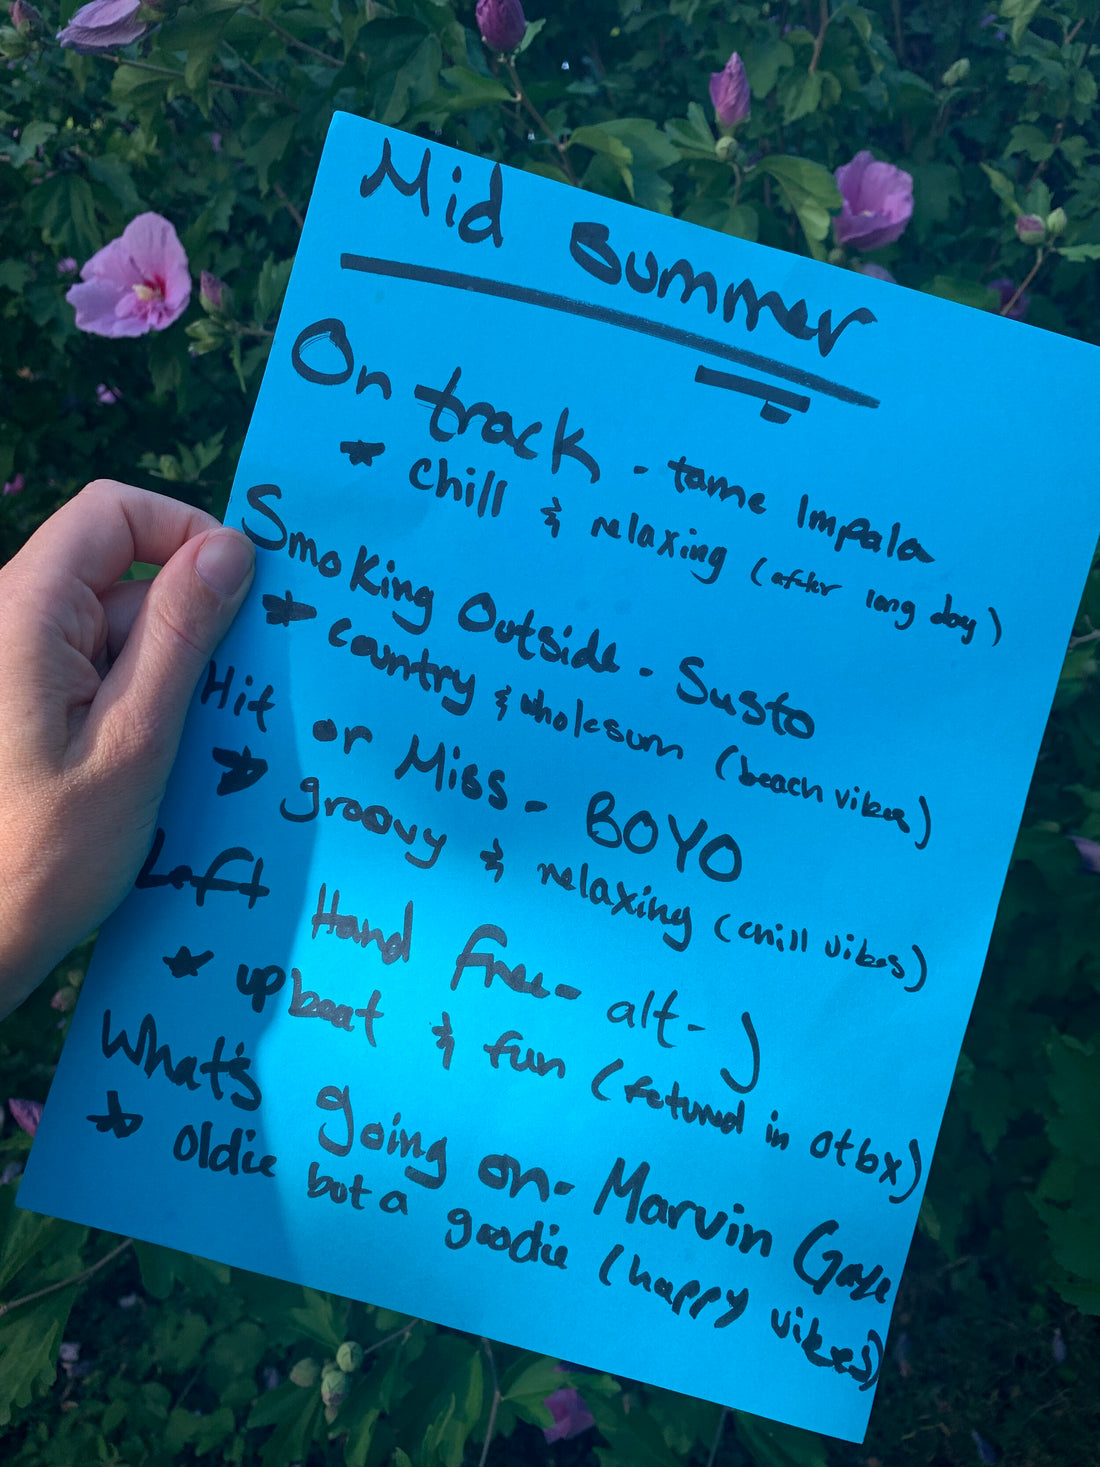 Mid Summer
On track - tame Impala
★ chill & relaxing (after long day)
Smoking Outside - Susto
★ country & wholesum (beach vibes)
Hit or Miss - BOYO
★ groovy & relaxing (chill vibes)
Left Hand Free - alt-J
★ upbeat & fun (fetured in otbx)
What's going on - Marvin Gaye
★ oldie but a goodie (happy vibes)